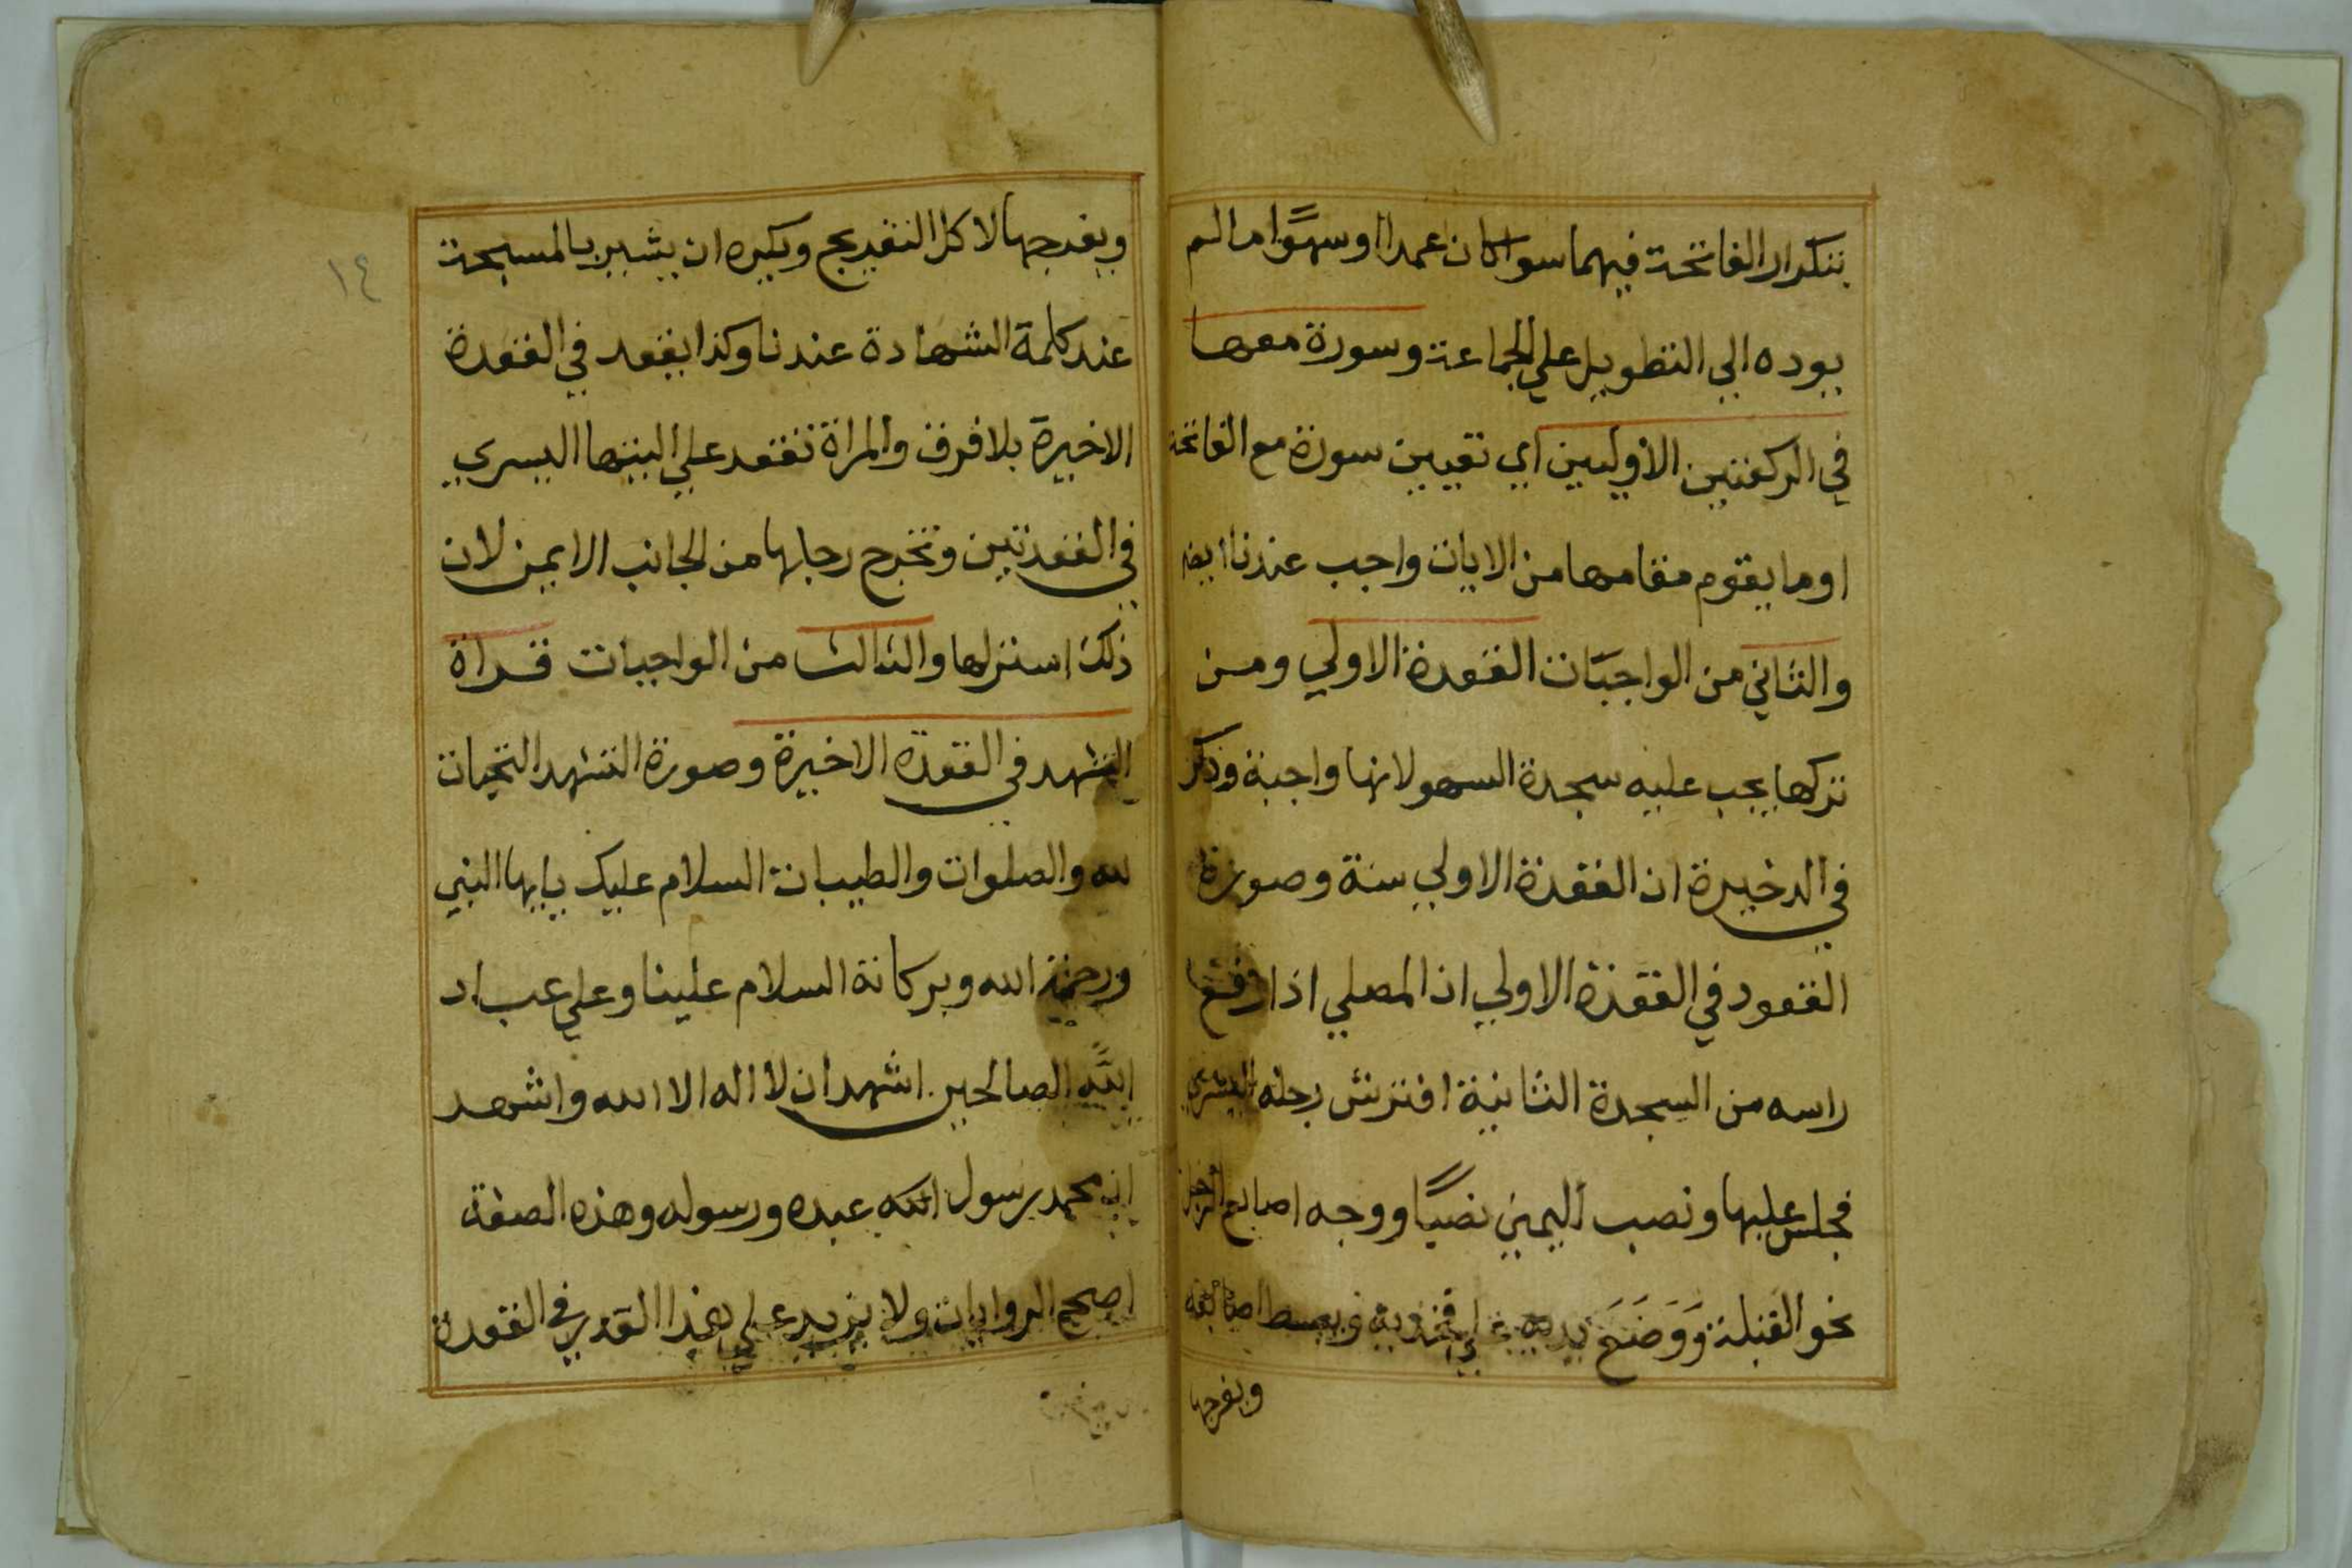 بتكرار الفاتحة فيهما سوا كان عمدا او سهوًا ما لم
يوده الي التطويل علي الجماعة وسورة معها
في الركعتين الأوليين اي تعيين سورة مع الفاتحة
او ما يقوم مقامها من الايات واجب عندنا ايضا
والثاني من الواجبات القعدة الاولي ومن
تركها يجب عليه سجدة السهو لانها واجبة وذكر
في الدخيرة ان القعدة الاولي سنة وصورة
القعود في القعدة الاولي ان المصلي اذا رفع
راسه من السجدة الثانية افترش رجله اليسري
فجلس عليها ونصب اليمني نصبًا ووجه اصابع الرجل
نحو القبلة وَوَضَعَ يديه علي فخذيه ويبسط اصابعه
ويفرجها
١٤
ويفرجها لا كل التفريج ويكره ان يشير بالمسبحة
عند كلمة الشهادة عندنا وكذا يقعد في القعدة
الاخيرة بلا فرق والمراة تقعد علي اليتها اليسري
في القعدتين وتخرج رجليها من الجانب الايمن لان
ذلك استر لها والثالث من الواجبات قراة
التشهد في القعدة الاخيرة وصورة التشهد التحيات
لله والصلوات والطيبات السلام عليك يايها النبي
ورحمة الله وبركاتة السلام علينا وعلي عباد
اللّه الصالحين اشهد ان لا اله الا الله واشهد
ان محمد رسول الله عبده ورسوله وهذه الصفة
اصح الروايات ولا يزيد علي هذا القدر في القعدة